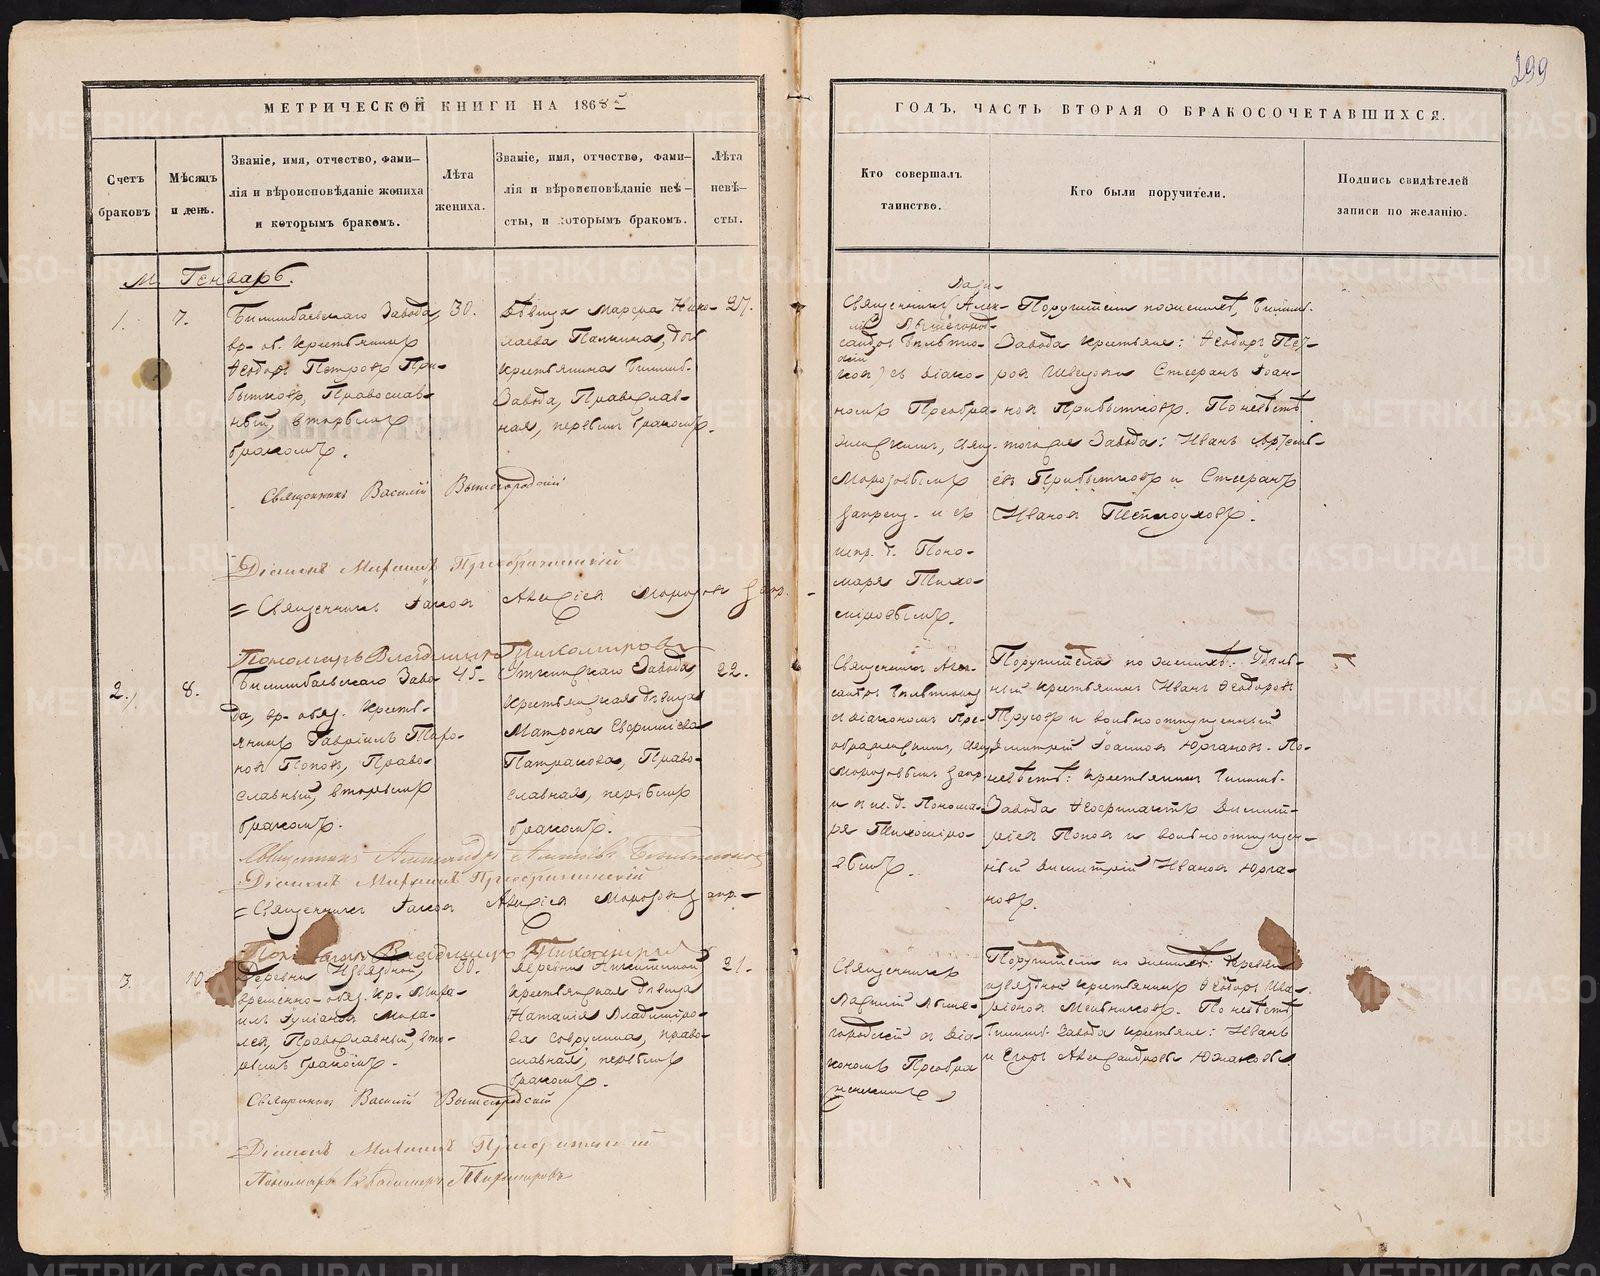 299
МЕТРИЧЕСКОЙ КНИГИ НА 1868й
ГОДЪ, ЧАСТЬ ВТОРАЯ О БРАКОСОЧЕТАВШИХСЯ.
Счетъ
браковъ
Мѣсяцъ
и день.
Званіе, имя, отчество, фами-
лія и вѣроисповѣданіе жениха
и которымъ бракомъ.
Лѣта
жениха.
Званіе, имя, отчество, фами-
лія и вѣроисповѣданіе невѣ-
сты, и которымъ бракомъ.
Лѣта
невѣ-
сты.
Кто совершалъ
таинство.
Кто были поручители.
Подпись свидѣтелей
записи по желанію.
М. Генварь.
1.
7.
Билимбаевскаго Завода,
вр. об. крестьянинъ
Ѳеодоръ Петровъ При-
бытковъ, Православ-
ный, вторымъ
бракомъ.
30.
Дѣвица Марѳа Нико-
лаева Папнина, дочь
крестьянина Билимб.
Завода, Православ-
ная, первымъ бракомъ.
27.
Священникъ
съ Діако-
номъ Преобра-
женскимъ, свящ.
Морозовымъ
запрещ. и съ
испр. д. Поно-
маря Тихо-
мировымъ.
Поручители по женихѣ, Билимб.
Завода крестьяне: Ѳеодоръ Пет-
ровъ Швецовъ и Стефанъ Іоан-
новъ Прибытковъ. По невѣстѣ
тогоже Завода: Иванъ Артемь-
евъ Прибытковъ и Стефанъ
Ивановъ Теплоуховъ.
Священникъ Василій Вышегородскій
Діаконъ Преображенскій
Священникъ Іаковъ Алексіевъ Морозовъ запр.
Пономарь Владимиръ Тихомировъ
2.
8.
Билимбаевскаго Заво-
да, вр. обяз. кресть-
янинъ Гавріилъ
Поповъ, Право-
славный, вторымъ
бракомъ.
45.
Уткинскаго Завода,
крестьянская дѣвица
Матрона
Патракова, Право-
славная, первымъ
бракомъ.
22.
Священникъ Алек-
сандръ
съ діакономъ Пре-
ображенскимъ, свящ.
Морозовымъ запр.
и и. д. Понома-
ря Тихомиро-
вымъ.
Поручители по женихѣ:
крестьянинъ Иванъ Ѳеодоровъ
Трусовъ и вольноотпущенный
Димитрій Іоанновъ Юргановъ. По
невѣстѣ: крестьянинъ Билимб.
Завода Димит-
ріевъ Поповъ и вольноотпущен-
ный Димитрій Ивановъ Юрга-
новъ.
Священникъ Александръ
Діаконъ Преображенскій
Священникъ Іаковъ Алексіевъ Морозовъ запр.
Пономарь Владимиръ Тихомировъ
3.
10.
Деревни Извѣздной,
временно-обяз. кр. Миха-
илъ Іуліановъ
Православный, вто-
рымъ бракомъ.
30.
Деревни
крестьянская дѣвица
Наталія Владиміро-
ва право-
славная, первымъ
бракомъ.
21.
Священникъ
Василій Выше-
городскій съ діа-
кономъ Преобра
женскимъ
Поручители по женихѣ: деревни
Извѣздной крестьянинъ Ѳеодоръ Ила-
ріоновъ Мельниковъ. По невѣстѣ
Билимб. Завода крестьяне: Иванъ
и Егоръ Александровы Южаковы.
Священникъ Василій Вышегородскій
Діаконъ Преображенскій
Пономарь Владимиръ Тихомировъ
METRIKI.GASO-URAL.RU